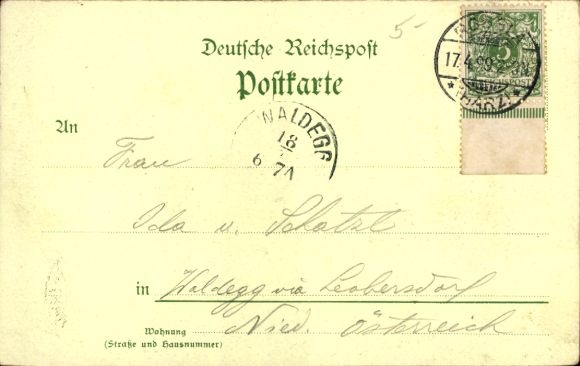 5-
Deutsche Reichspost
Postkarte
17.4.99
* (HARZ) *
5
REICHSPOST
WALDEGG
18
6 7A
An
Frau
Ida v. Schatzl
in Waldegg via Leobersdorf
Wohnung
(Straße und Hausnummer)
Nied. Österreich